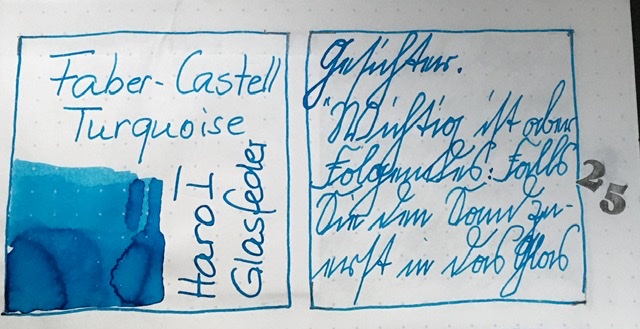 Faber-Castell
Turquoise
Harot
Glasfeder
Gesichter.
"Wichtig ist aber
Folgendes: Falls
Sie den Sand zu-
erst in das Glas
25